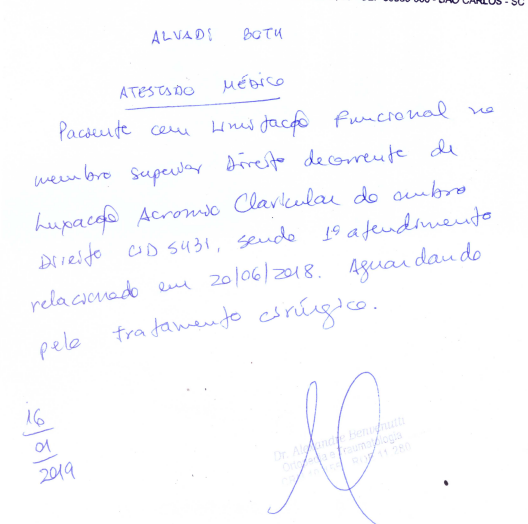 SÃO CARLOS - SC
ALVADI BOTH
ATESTADO MÉDICO
Paciente com Limitação Funcional no
membro superior Direito decorrente de
Luxação Acromio Clavicular do ombro
Direito CID S431, sendo 1º atendimento
relacionado em 20/06/2018. Aguardando
pelo tratamento cirúrgico.
16
01
2019
Dr. Alexandre Benvenutti
Ortopedia e Traumatologia